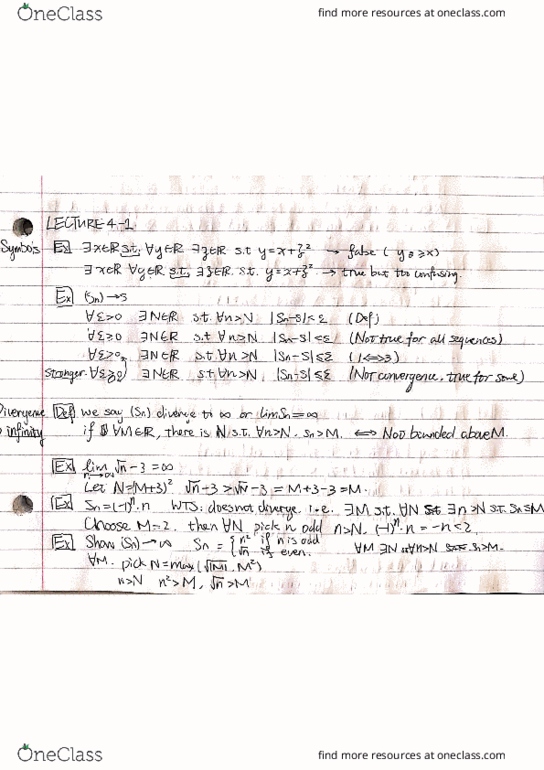 OneClass find more resources at oneclass.com
LECTURE 4-1
Symbols Ex ∃x∈R s.t. ∀y∈R ∃z∈R s.t y=x+z² → false ( y ≥x)
∃x∈R ∀y∈R s.t. ∃z∈R. s.t. y=x+z² → true but too confusing.
Ex (Sn)→s
∀ε>0 ∃N∈R s.t. ∀n>N |Sn-s|<ε (Def)
∀ε>0 ∃N∈R s.t ∀n≥N |Sn-s|<ε (Not true for all sequences)
∀ε>0, ∃N∈R s.t. ∀n>N |Sn-s|≤ε (1⟺3)
Stronger. ∀ε≥0) ∃N∈R s.t. ∀n>N, |Sn-s|≤ε (Not convergence, true for some)
Divergence Def we say (Sn) diverge to ∞ or limSn=∞
infinity if ∀M∈R, there is N s.t. ∀n>N. Sn>M. ⟺ bounded above M.
Ex lim n→∞ √n-3=∞
Let N=(M+3)² √n-3>√N-3=M+3-3=M.
Ex Sn=(-1)ⁿ.n WTS: does not diverge. i.e. ∃M s.t. ∀N ∃n>N s.t. Sn≤M
Choose M=2. then ∀N pick n odd n>N. (-1)ⁿ.n=-n<2.
Ex Show (Sn)→∞ Sn = { n² if n is odd √n if even. ∀M ∃N ∀n>N Sn>M.
∀M. pick N=max(√|M|, M²)
n>N n²>M, √n>M
OneClass find more resources at oneclass.com